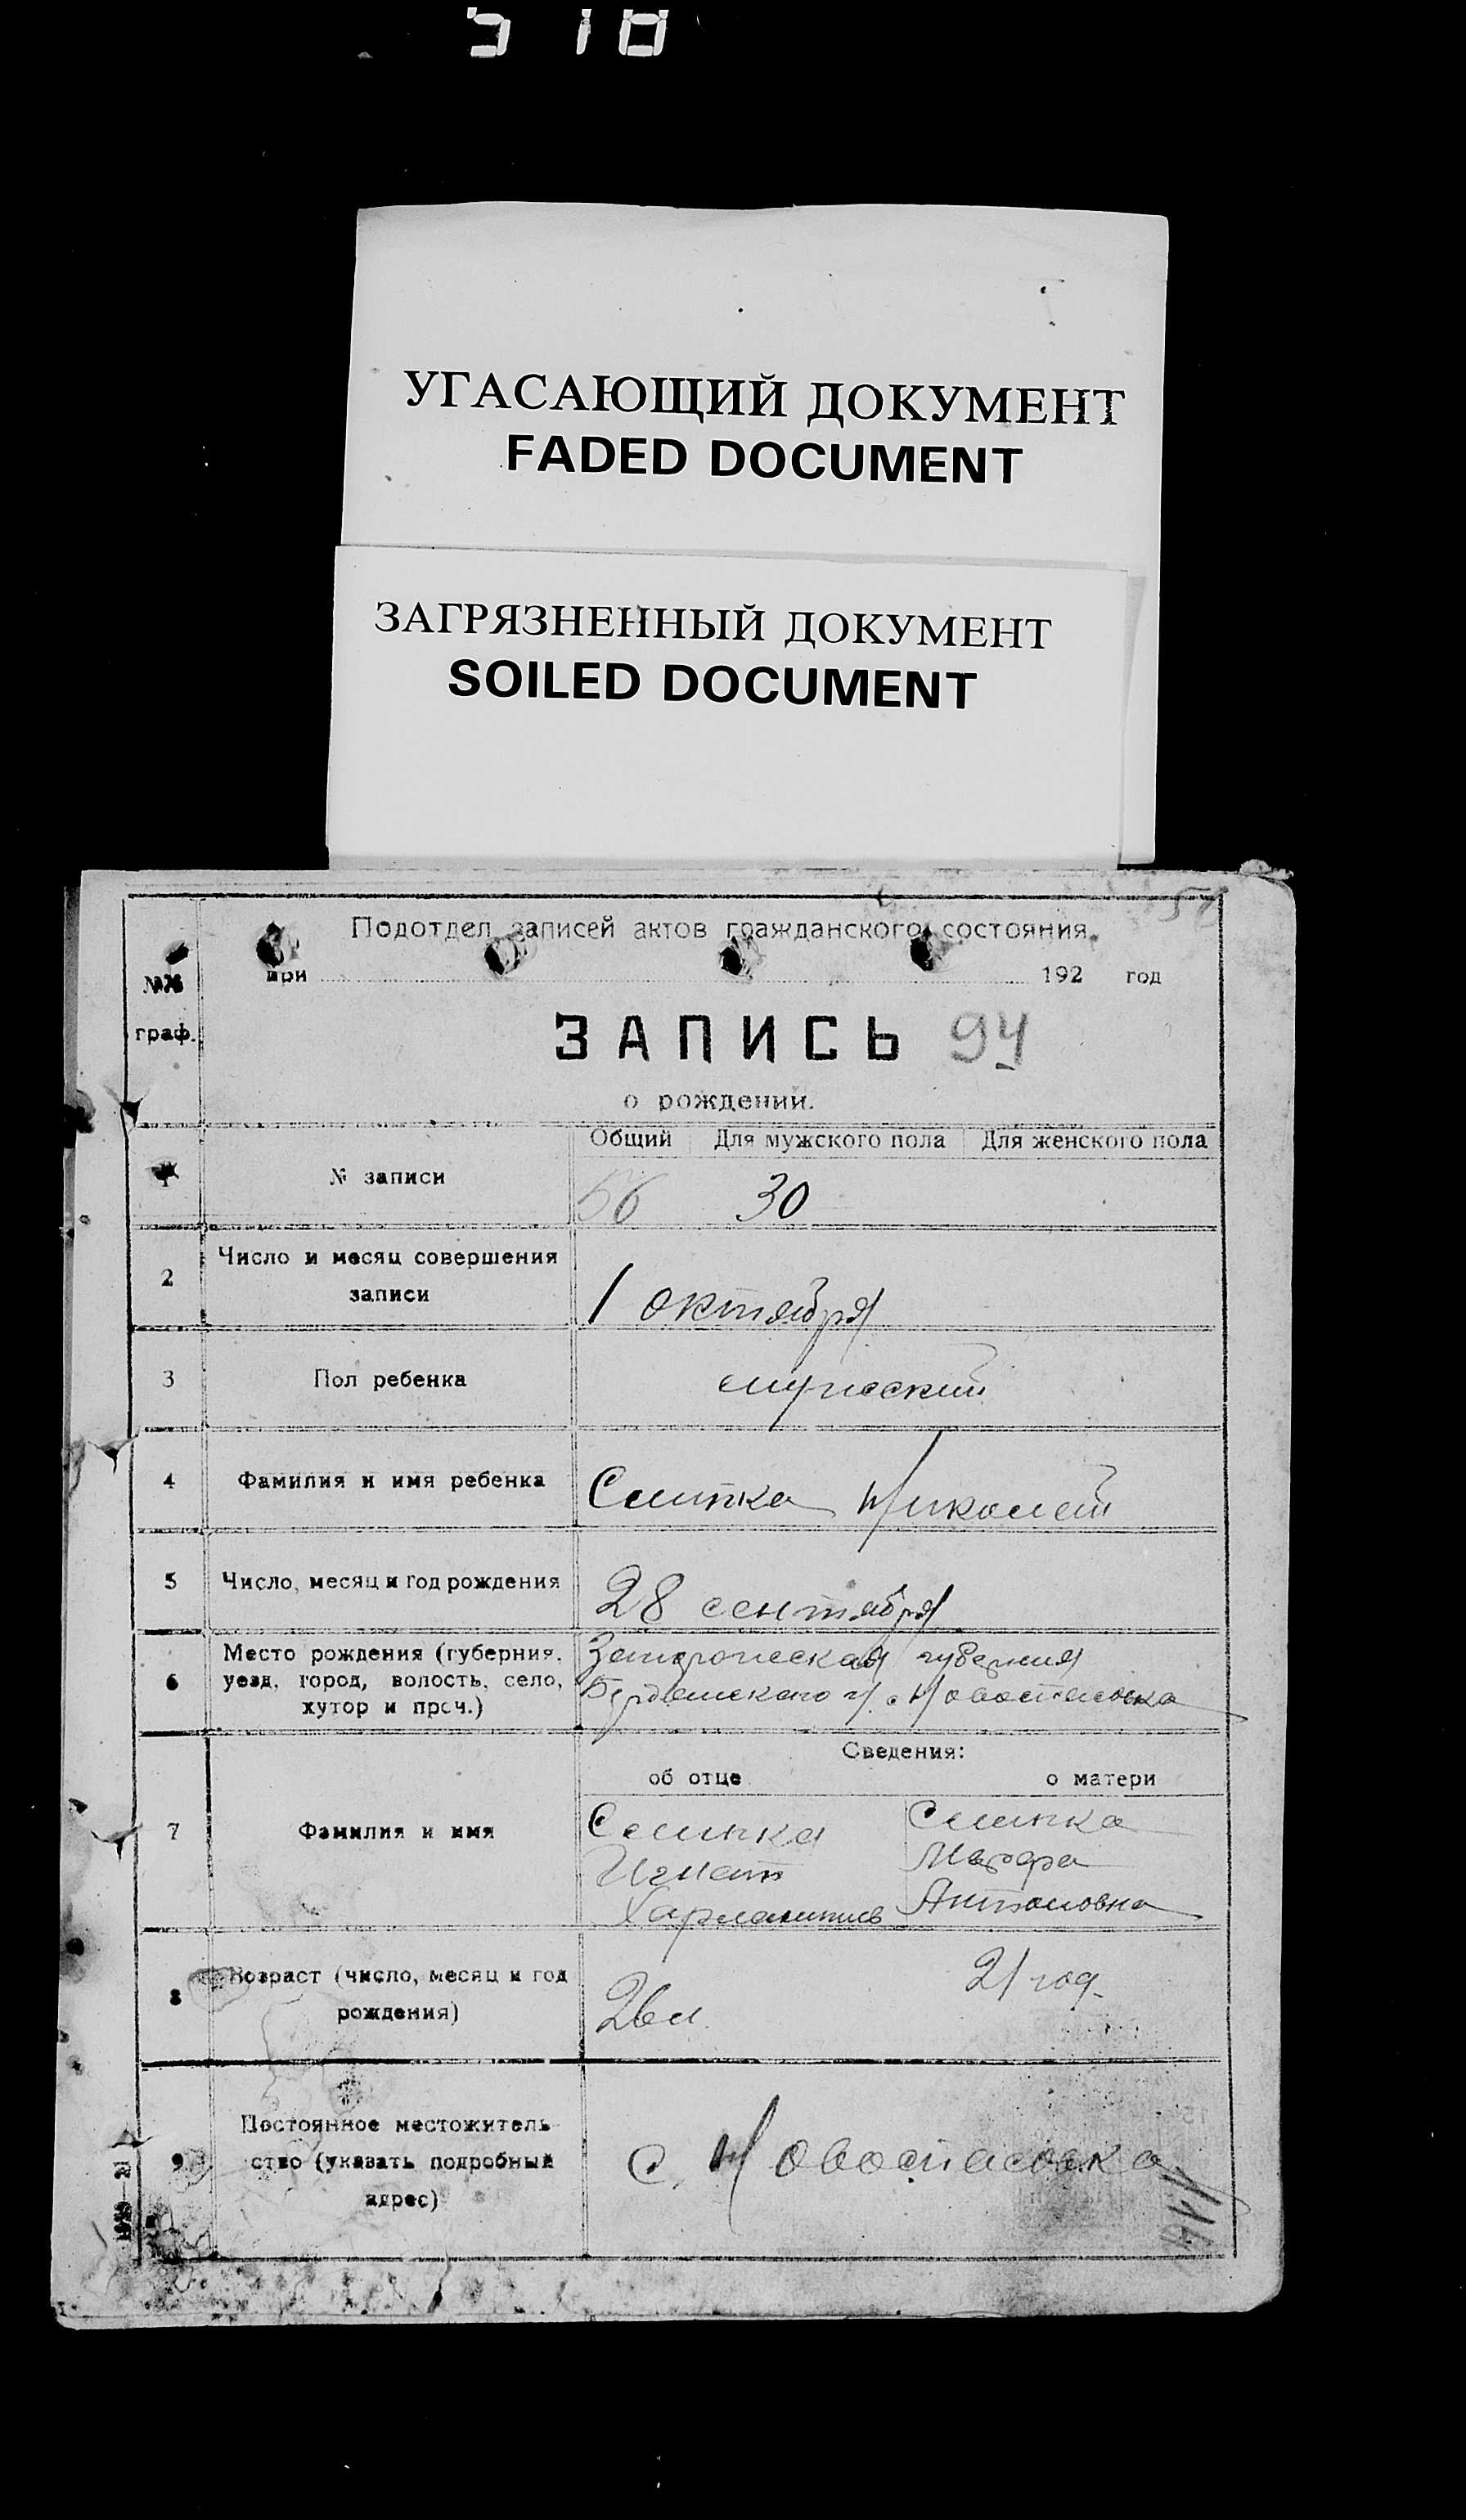 УГАСАЮЩИЙ ДОКУМЕНТ
FADED DOCUMENT
ЗАГРЯЗНЕННЫЙ ДОКУМЕНТ
SOILED DOCUMENT
Подотдел записей актов гражданского состояния
при 192 год
№№
граф.
ЗАПИСЬ 94
о рождении.
Общий Для мужского пола Для женского пола
1 № записи 56 30
2 Число и месяц совершения
записи
1 октября
3 Пол ребенка мужеский
4 Фамилия и имя ребенка Николай
5 Число, месяц и год рождения 28 сентября
6 Место рождения (губерния,
уезд, город, волость, село,
хутор и проч.)
губерния
Бердянского у. с. Новоспасовка
Сведения:
об отце о матери
7 Фамилия и имя
Игнат
Антоновна
8 Возраст (число, месяц и год
рождения)
26 л. 21 год.
9 Постоянное местожитель-
ство (указать подробный
адрес)
с. Новоспасовка